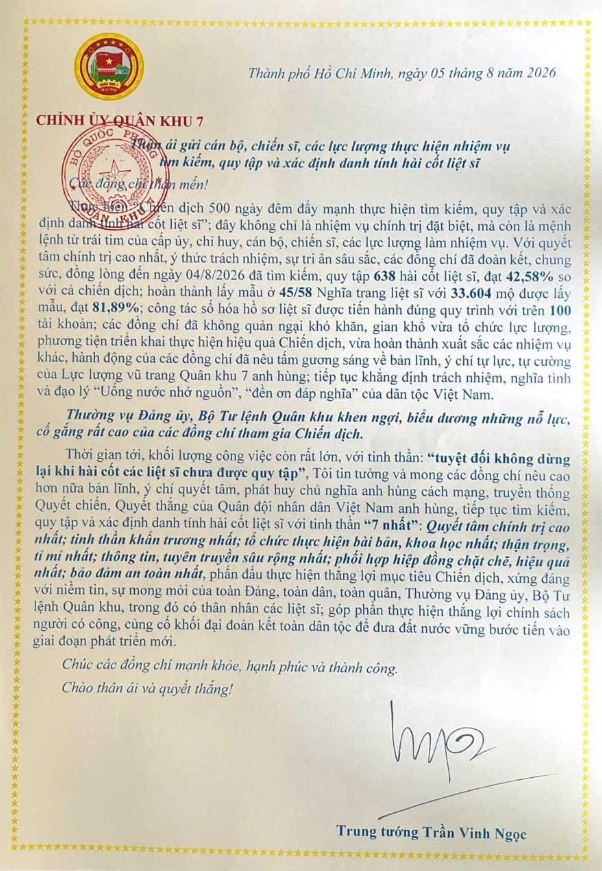 Thành phố Hồ Chí Minh, ngày 05 tháng 8 năm 2026
CHÍNH ỦY QUÂN KHU 7
Thân ái gửi cán bộ, chiến sĩ, các lực lượng thực hiện nhiệm vụ
tìm kiếm, quy tập và xác định danh tính hài cốt liệt sĩ
BỘ QUỐC PHÒNG
QUÂN KHU 7
Các đồng chí thân mến!
Thực hiện "Chiến dịch 500 ngày đêm đẩy mạnh thực hiện tìm kiếm, quy tập và xác
định danh tính hài cốt liệt sĩ"; đây không chỉ là nhiệm vụ chính trị đặt biệt, mà còn là mệnh
lệnh từ trái tim của cấp ủy, chỉ huy, cán bộ, chiến sĩ, các lực lượng làm nhiệm vụ. Với quyết
tâm chính trị cao nhất, ý thức trách nhiệm, sự tri ân sâu sắc, các đồng chí đã đoàn kết, chung
sức, đồng lòng đến ngày 04/8/2026 đã tìm kiếm, quy tập 638 hài cốt liệt sĩ, đạt 42,58% so
với cả chiến dịch; hoàn thành lấy mẫu ở 45/58 Nghĩa trang liệt sĩ với 33.604 mộ được lấy
mẫu, đạt 81,89%; công tác số hóa hồ sơ liệt sĩ được tiến hành đúng quy trình với trên 100
tài khoản; các đồng chí đã không quản ngại khó khăn, gian khổ vừa tổ chức lực lượng,
phương tiện triển khai thực hiện hiệu quả Chiến dịch, vừa hoàn thành xuất sắc các nhiệm vụ
khác, hành động của các đồng chí đã nêu tấm gương sáng về bản lĩnh, ý chí tự lực, tự cường
của Lực lượng vũ trang Quân khu 7 anh hùng; tiếp tục khẳng định trách nhiệm, nghĩa tình
và đạo lý "Uống nước nhớ nguồn", "đền ơn đáp nghĩa" của dân tộc Việt Nam.
Thường vụ Đảng ủy, Bộ Tư lệnh Quân khu khen ngợi, biểu dương những nỗ lực,
cố gắng rất cao của các đồng chí tham gia Chiến dịch.
Thời gian tới, khối lượng công việc còn rất lớn, với tinh thần: "tuyệt đối không dừng
lại khi hài cốt các liệt sĩ chưa được quy tập", Tôi tin tưởng và mong các đồng chí nêu cao
hơn nữa bản lĩnh, ý chí quyết tâm, phát huy chủ nghĩa anh hùng cách mạng, truyền thống
Quyết chiến, Quyết thắng của Quân đội nhân dân Việt Nam anh hùng, tiếp tục tìm kiếm,
quy tập và xác định danh tính hài cốt liệt sĩ với tinh thần "7 nhất": Quyết tâm chính trị cao
nhất; tinh thần khẩn trương nhất; tổ chức thực hiện bài bản, khoa học nhất; thận trọng,
tỉ mỉ nhất; thông tin, tuyên truyền sâu rộng nhất; phối hợp hiệp đồng chặt chẽ, hiệu quả
nhất; bảo đảm an toàn nhất, phấn đấu thực hiện thắng lợi mục tiêu Chiến dịch, xứng đáng
với niềm tin, sự mong mỏi của toàn Đảng, toàn dân, toàn quân, Thường vụ Đảng ủy, Bộ Tư
lệnh Quân khu, trong đó có thân nhân các liệt sĩ; góp phần thực hiện thắng lợi chính sách
người có công, củng cố khối đại đoàn kết toàn dân tộc để đưa đất nước vững bước tiến vào
giai đoạn phát triển mới.
Chúc các đồng chí mạnh khỏe, hạnh phúc và thành công.
Chào thân ái và quyết thắng!
Trung tướng Trần Vinh Ngọc